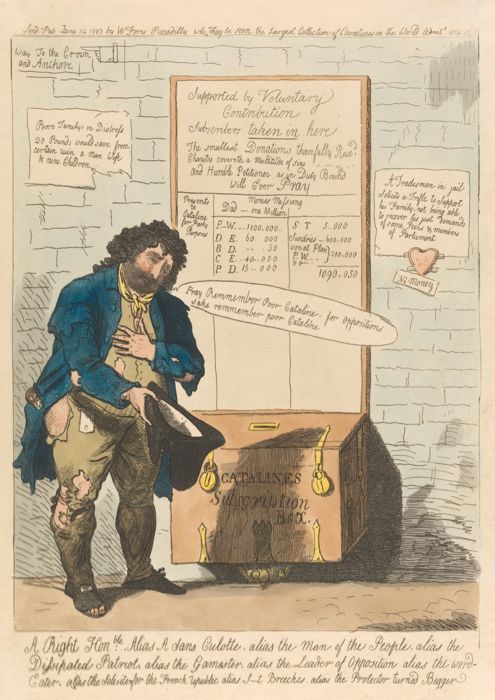 Sold Pub June 14 1793 by W Fores Piccadilly who may be seen the Largest Collection of Caricatures in the World Admitt one
Way To the Crown
and Anchor
Supported by Voluntary
Contribution
Subscribers taken in here
The smallest Donations thankfully Recd
Charity covereth a Multitude of sins
and Humble Petitioner as in Duty Bound
Will Ever Pray
Poore Family in Distress
20 Pounds would save from
certain ruin a Man Wife
& nine Children
A Tradesman in jail
solicits a Trifle to Support
his Family not being able
to recover his just Demands
of some Peers & members
of Parliament
No Money
Presents
to
Cataline
for Party
Purposes
Monies Missing
Dad — one Million
P. W. — 1100.000
D. E. 60.000
B D. — 50
C E — 40.000
P D. 15-000
S T 5.000
Sundries — 600,000
P W — 200,000
1090,050
Pray Remmember Poor Cataline, for oppositions
sake remmember poor Cataline
CATALINES
Subscription
Box.
A Right Honble Alias A Sans Culotte. alias the Man of the People. alias the
Dissipated Patriot. alias the Gamaster. alias the Leader of Opposition alias the word-
Eater. alias the for the French alias S—t Breeches. alias the Protector turned Beggar